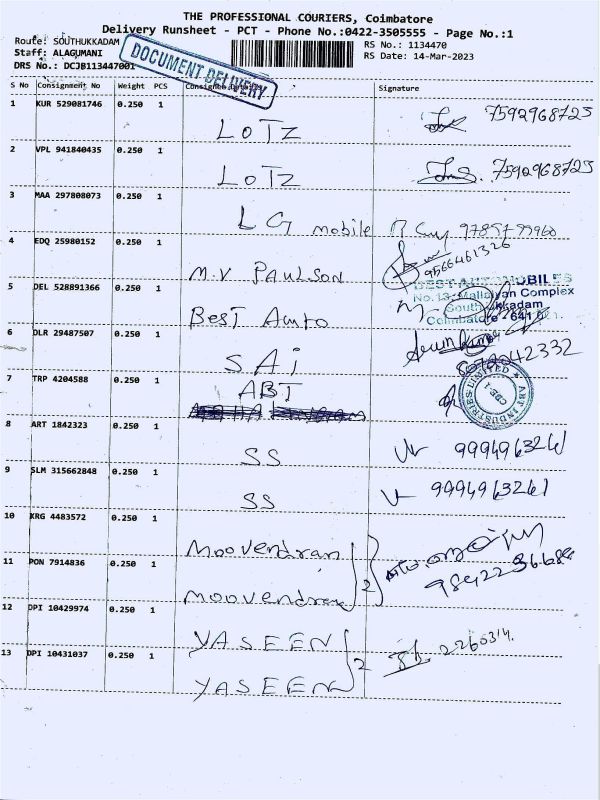 THE PROFESSIONAL COURIERS, Coimbatore
Delivery Runsheet - PCT - Phone No.:0422-3505555 - Page No.:1
Route: SOUTHUKKADAM
Staff: ALAGUMANI
DRS No.: DCJB113447001
DOCUMENT DELIVERY
RS No.: 1134470
RS Date: 14-Mar-2023
S No Consignment No Weight PCS Consignee Details Signature
1 KUR 529081746 0.250 1 LOTZ 7592968725
2 VPL 941840435 0.250 1 LOTZ 7592968725
3 MAA 297808073 0.250 1 LG mobile
4 EDQ 25980152 0.250 1 M.V PAULSON 9566461326
5 DEL 528891366 0.250 1 Best Auto
BEST AUTOMOBILES
No.13, Mallaiyan Complex
South Ukkadam
Coimbatore - 641 021.
6 DLR 29487507 0.250 1 SAi
7 TRP 4204588 0.250 1 ABT
ABT INDUSTRIES LIMITED
CBE-1
8 ART 1842323 0.250 1 SS 9994963261
9 SLM 315662848 0.250 1 SS 9994963261
10 KRG 4483572 0.250 1 Moovendran
11 PON 7914836 0.250 1 Moovendran 2
12 DPI 10429974 0.250 1 YASEEN
13 DPI 10431037 0.250 1 YASEEN 2 2260314.